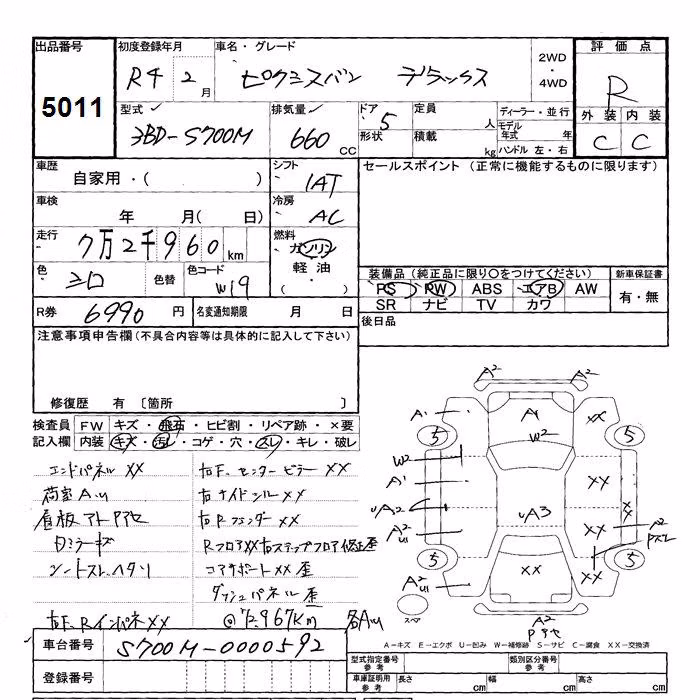 出品番号
5011
初度登録年月
R4 2月
車名・グレード
ピクシスバン デラックス
2WD
・
4WD
評価点
R
外装 内装
C C
型式
3BD-S700M
排気量
660 CC
ドア
5
形状
定員
人
積載
kg
ディーラー・並行
モデル年式 年
ハンドル 左・右
車歴
自家用・( )
シフト
IAT
セールスポイント (正常に機能するものに限ります)
車検
年 月( 日)
冷房
AC
走行
7万2千960km
燃料
ガソリン
軽油
色
シロ
色替
色コード
W19
装備品 (純正品に限り○をつけてください)
PS PW ABS エアB AW
SR ナビ TV カワ
新車保証書
有・無
R券
6990円
名変通知期限 月 日
後日品
注意事項申告欄(不具合内容等は具体的に記入して下さい)
修復歴 有 〔箇所 〕
検査員 FW キズ・飛石・ヒビ割・リペア跡・×要
記入欄 内装 キズ・汚レ・コゲ・穴・スレ・キレ・破レ
エンドパネル XX
荷室 AU
シートスレ、ヘタリ
右F、センターピラー XX
右サイドシル XX
右Rフェンダー XX
RフロアXX右ステップフロア修正歪
コアサポートXX 歪
ダッシュパネル 歪
右F、Rインパネ XX
@72,967km
各AU
A2 A2
A1 A1 XX
5 5
W2 W2
A1 XX
UA2 UA3 XX
A2 XX A2
U1
5 5
XX XX
A2
U1
スペア
A2
A=キズ E=エクボ U=凹み W=補修跡 S=サビ C=腐食 XX=交換済
車台番号
S700M-0000592
型式指定番号
参考
類別区分番号
参考
登録番号
車庫証明用
参考
長さ cm
幅 cm
高さ cm